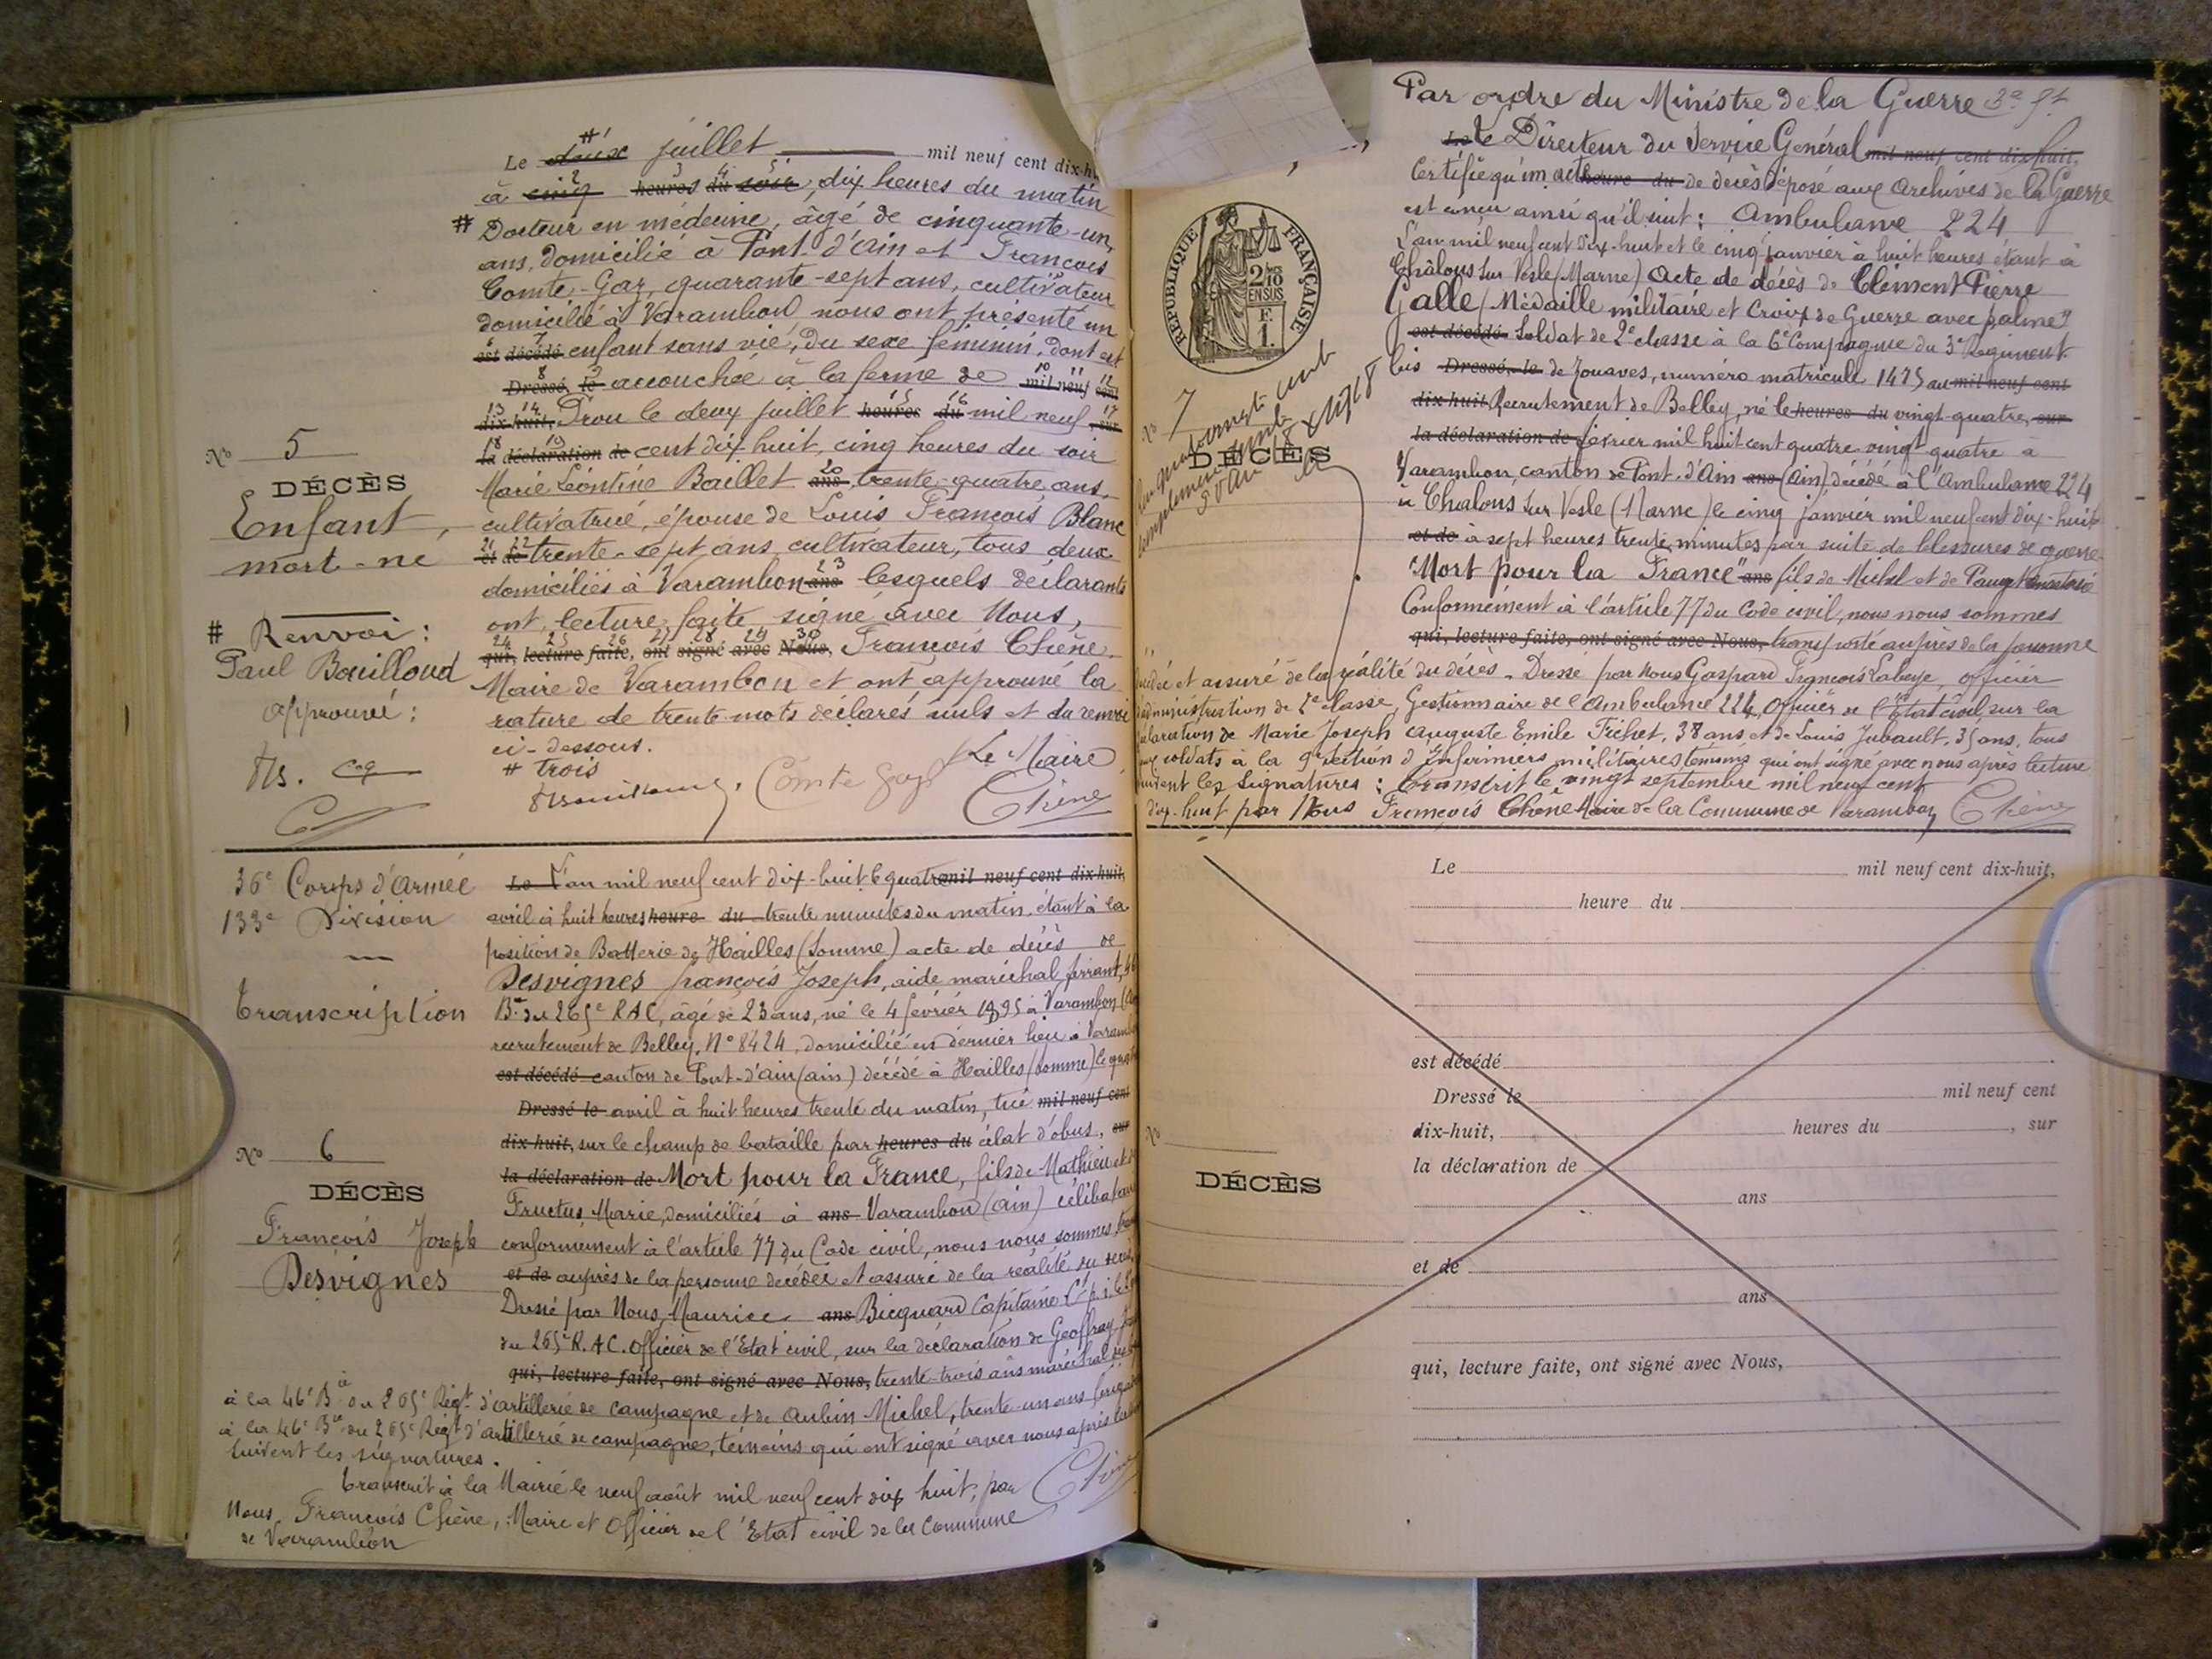 Le deux juillet mil neuf cent dix-h
à cinq heures du soir, dix heures du matin
# Docteur en médecine, âgé de cinquante-un
ans, domicilié à Pont-d'Ain et François
Comte-Gaz, quarante-sept ans, cultivateur
domicilié à Varambon nous ont présenté un
est décédé enfant sans vie, du sexe féminin, dont est
Dressé le accouchée à la ferme de mil neuf cent
dix-huit, Drou le deux juillet heures du mil neuf, sur
la déclaration de cent dix huit, cinq heures du soir
Marie Léontine Baillet ans trente-quatre ans,
cultivatrice, épouse de Louis François Blanc
et de trente-sept ans cultivateur, tous deux
domiciliés à Varambon ans lesquels déclarants
ont, lecture faite signé avec Nous,
qui, lecture faite, ont signé avec Nous, François Chêne
Maire de Varambon et ont approuvé la
rature de trente mots déclarés nuls et du renvoi
ci-dessous.
# trois
Le Maire
Comte Gaz
Chêne
No 5
DÉCÈS
Enfant
mort-né
# Renvoi :
Paul Bouilloud
Approuvé :
36e Corps d'Armée
133e Division
Transcription
No 6
DÉCÈS
François Joseph
Desvignes
Le L'an mil neuf cent dix-huit le quatre mil neuf cent dix-huit,
avril à huit heures heure du trente minutes du matin, étant à la
position de Batterie de Hailles (Somme) acte de décès de
Desvignes françois Joseph, aide maréchal ferrant, 46
Bie du 265e RAC, âgé de 23 ans, né le 4 février 1895 à Varambon (Ain
recrutement de Belley, No 8424, domicilié en dernier lieu à Varamb
est décédé canton de Pont-d'Ain (ain) décédé à Hailles (Somme) le quat
Dressé le avril à huit heures trente du matin, tué mil neuf cent
dix-huit, sur le champ de bataille par heures du éclat d'obus, sur
la déclaration de Mort pour la France, fils de Mathieu et d
Fructus Marie, domiciliés à ans Varambon (ain) célibataire
conformément à l'article 77 du Code civil, nous nous sommes
et de auprès de la personne décédée et assuré de la réalité du décès
Dressé par Nous, Maurice ans Bicquard Capitaine
du 265e R.A.C. Officier de l'Etat civil, sur la déclaration de Geoffray
qui, lecture faite, ont signé avec Nous, trente-trois ans maréchal
à la 46e Bie du 265e Régt d'artillerie de campagne et de Aubin Michel, trente-un ans
à la 46e Bie du 265e Régt d'artillerie de campagne, témoins qui ont signé avec nous après
suivent les signatures.
Transcrit à la Mairie le neuf août mil neuf cent dix huit, par
Nous François Chêne, Maire et Officier de l'Etat civil de la Commune
de Varambon
Chêne
Par ordre du Ministre de la Guerre
Le Le Directeur du Service Général mil neuf cent dix-huit,
Certifie qu'un acte heure du de décès déposé aux Archives de la Guerre
est conçu ainsi qu'il suit : Ambulance 224
L'an mil neuf cent dix-huit et le cinq janvier à huit heures étant à
Châlons sur Vesle (Marne) Acte de décès de Clément Pierre
Galle (Médaille militaire et Croix de Guerre avec palme)
est décédé Soldat de 2e classe à la 6e Compagnie du 3e Régiment
bis Dressé le de Zouaves, numéro matricule 1425 au mil neuf cent
dix-huit Recrutement de Belley, né le heures du vingt-quatre, sur
la déclaration de février mil huit cent quatre vingt quatre à
Varambon, canton de Pont-d'Ain ans (Ain), décédé à l'Ambulance 224
à Chalons sur Vesle (Marne) le cinq janvier mil neuf cent dix-huit
et de à sept heures trente minutes par suite de blessures de guerre
"Mort pour la France" ans fils de Michel et de
Conformément à l'article 77 du Code civil, nous nous sommes
qui, lecture faite, ont signé avec Nous, transporté auprès de la personne
décédée et assuré de la réalité du décès. Dressé par Nous Gaspard François Labeye, officier
d'administration de 2e classe, Gestionnaire de l'Ambulance 224, Officier de l'Etat civil, sur la
déclaration de Marie Joseph Auguste Emile Fichet, 38 ans et de Louis Jubault, 35 ans, tous
deux soldats à la 9e section d'Infirmiers militaires témoins qui ont signé avec nous après lecture
suivent les signatures : Transcrit le vingt septembre mil neuf cent
dix-huit par Nous François Chêne Maire de la Commune de Varambon
Chêne
RÉPUBLIQUE FRANÇAISE
2/10 EN SUS
F. 1.
No 7
DÉCÈS
Le mil neuf cent dix-huit,
heure du
est décédé
Dressé le mil neuf cent
dix-huit, heures du , sur
la déclaration de
ans
et de
ans
qui, lecture faite, ont signé avec Nous,
No
DÉCÈS